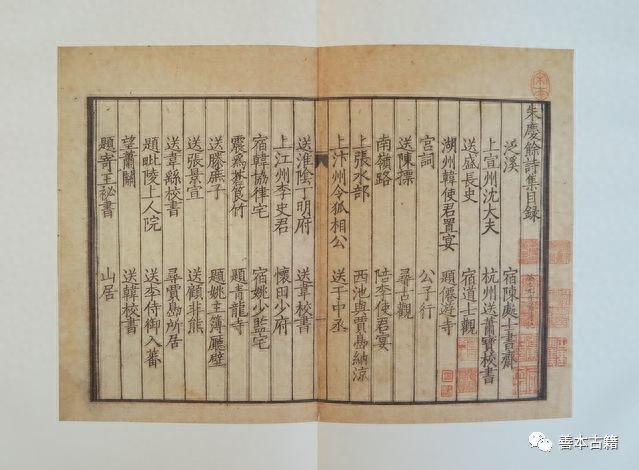 朱慶餘詩集目録
泛溪 宿陳處士書齋
上宣州沈大夫 杭州送蕭寶校書
送盛長史 宿道士觀
湖州韓使君置宴 題僊遊寺
宮詞 公子行
送陳摽 尋古觀
南嶺路 陪李使君宴
上張水部 西池與賈島納涼
上汴州令狐相公 送于中丞
送淮陰丁明府 送韋校書
上江州李史君 懷田少府
宿韓協律宅 宿姚少監宅
震為蒼筤竹 題青龍寺
送滕庶子 題姚主簿廳壁
送張景宣 送顧非熊
送韋縣校書 尋賈島所居
題毗陵上人院 送李侍御入蕃
望蕭關 送韓校書
題寄王祕書 山居
善本古籍